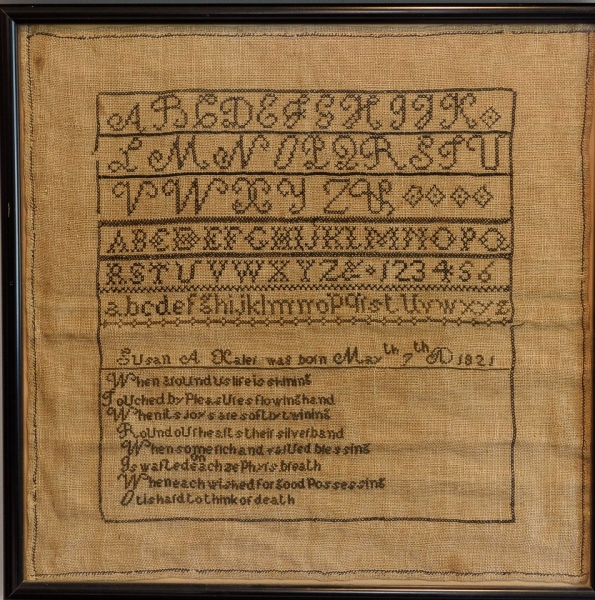 A B C D E F G H I J K
L M N O P Q R S T U
V W X Y Z &
A B C D E F G H I J K L M N O P Q
R S T U V W X Y Z & 1 2 3 4 5 6
a b c d e f g h i j k l m n o p q r s t u v w x y z
Susan A Kaler was born May 7th AD 1821
When around us life is shining
Touched by Pleasures flowing hand
When its joys are softly twining
Round our hearts their silver band
When some rich and valued blessing
Is wafted on each zephyrs breath
When each wished for good Possessing
Itis hard to think of death